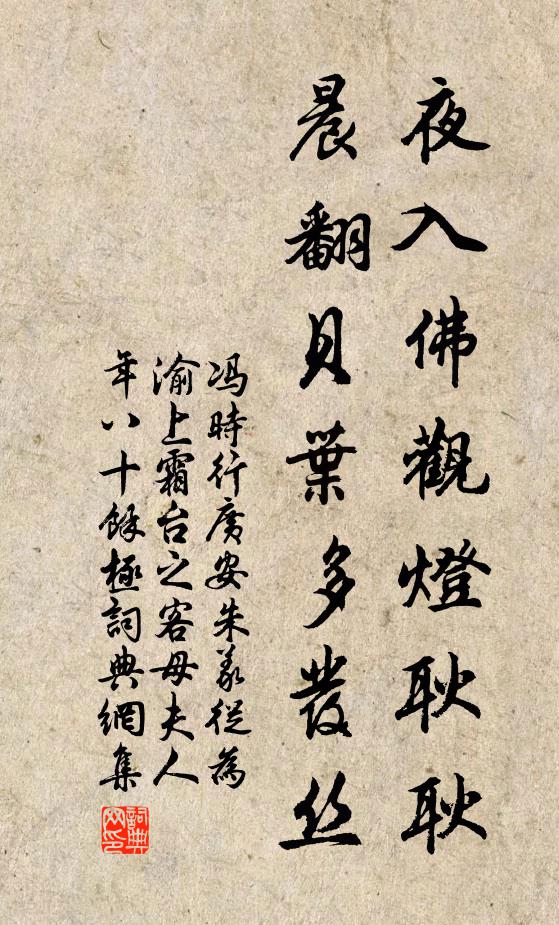 夜入佛觀燈耿耿
晨翻貝葉多發絲
馮時行廣安朱義從為
渝上霜台之客母夫人
年八十餘極詞典網集
詞典網印